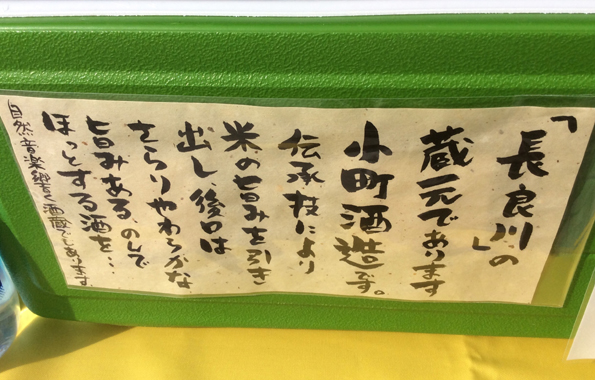 「長良川」の
蔵元であります
小町酒造です。
伝承技により
米の旨みを引き
出し、後口は
さらりやわらかな
旨みある、のんで
ほっとする酒を…
自然音楽響く酒蔵であります